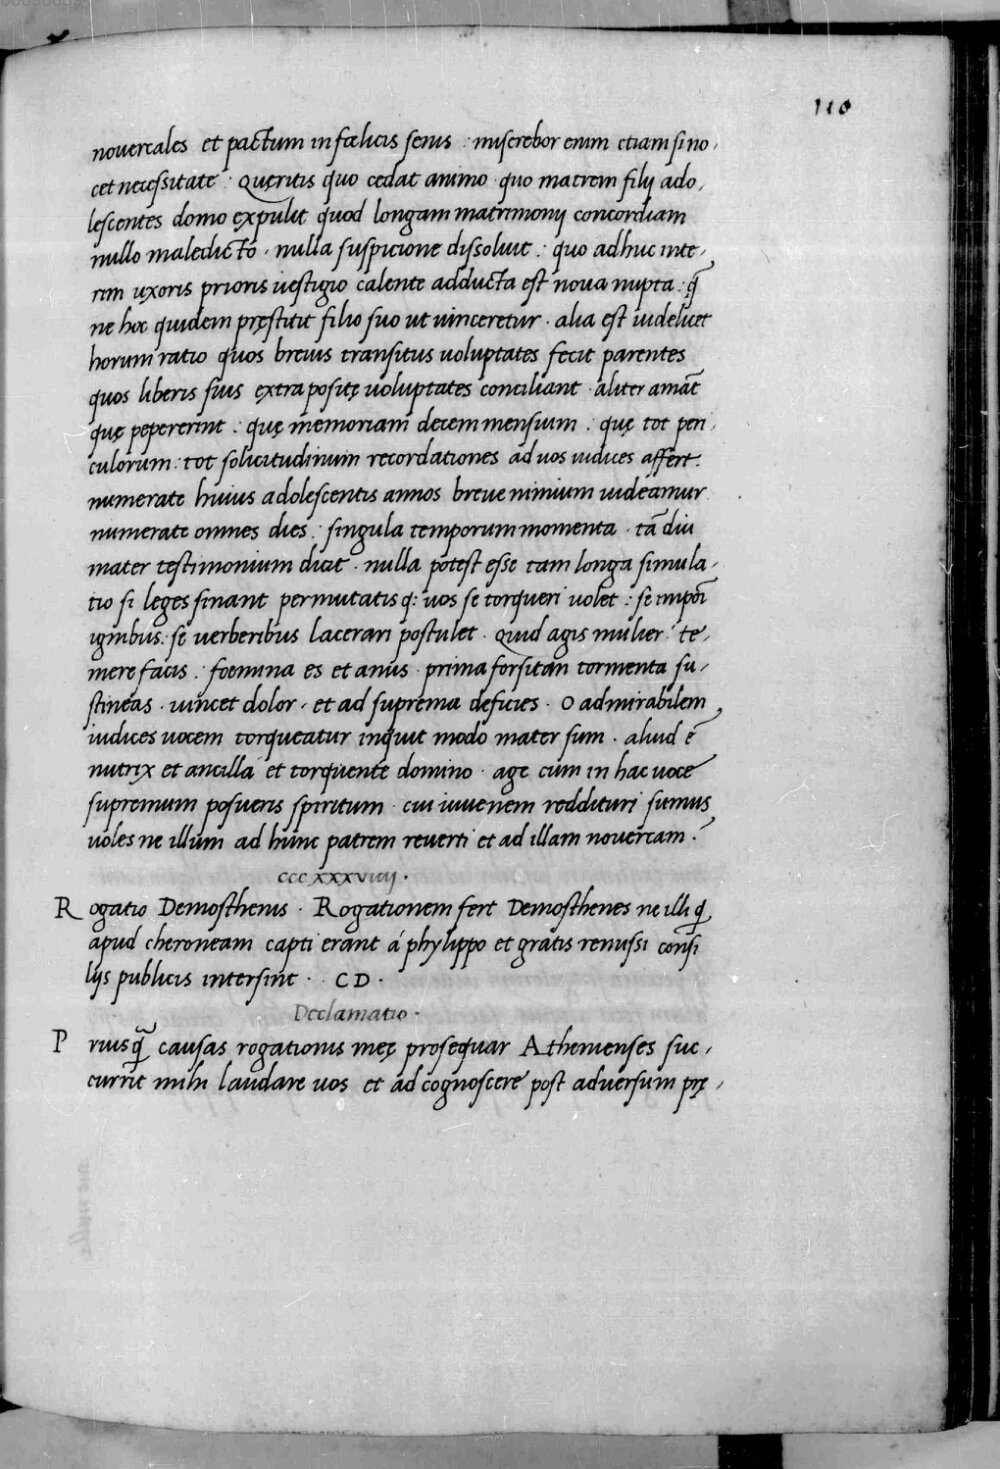 110
nouercales et pactum infœlicis senis : miserebor enim etiam si no,
cet necessitate : Queritis quo cedat animo · quo matrem filij ado,
lescentes domo expulit quod longam matrimonij concordiam
nullo maledicto · nulla suspicione dissoluit : quo adhuc inte,
rim uxoris prioris uestigio calente adducta est noua nupta : q̃
ne hoc quidem pręstitit filio suo ut uinceretur · alia est uidelicet
horum ratio quos breuis transitus uoluptates fecit parentes
quos liberis suis extra positę uoluptates conciliant · aliter amãt
quę pepererint : quę memoriam decem mensium : quę tot peri,
culorum : tot solicitudinum recordationes ad uos iudices affert :
numerate huius adolescentis annos breue nimium uideamur
numerate omnes dies : singula temporum momenta · tã diu
mater testimonium dicit · nulla potest esse tam longa simula,
tio si leges sinant permutatis q: uos se torqueri uolet : se imponi
ignibus : se uerberibus lacerari postulet · Quid agis mulier te,
mere facis : foemina es et anus · prima forsitan tormenta su,
stineas · uincet dolor, et ad suprema deficies · O admirabilem
iudices uocem torqueatur inquit modo mater sum · aliud ẽ
nutrix et ancilla et torquente domino · age cum in hac uoce
supremum posueris spiritum · cui iuuenem reddituri sumus
uoles ne illum ad hunc patrem reuerti et ad illam nouercam ·
CCCXXXVIIIJ ·
Rogatio Demosthenis · Rogationem fert Demosthenes ne illi q̃
apud cheroneam capti erant á phylippo et gratis remissi consi
lijs publicis intersint · CD ·
Declamatio ·
Priusq̃ causas rogationis meę prosequar Athenienses suc,
currit mihi laudare uos et ad cognoscere post aduersum prę,